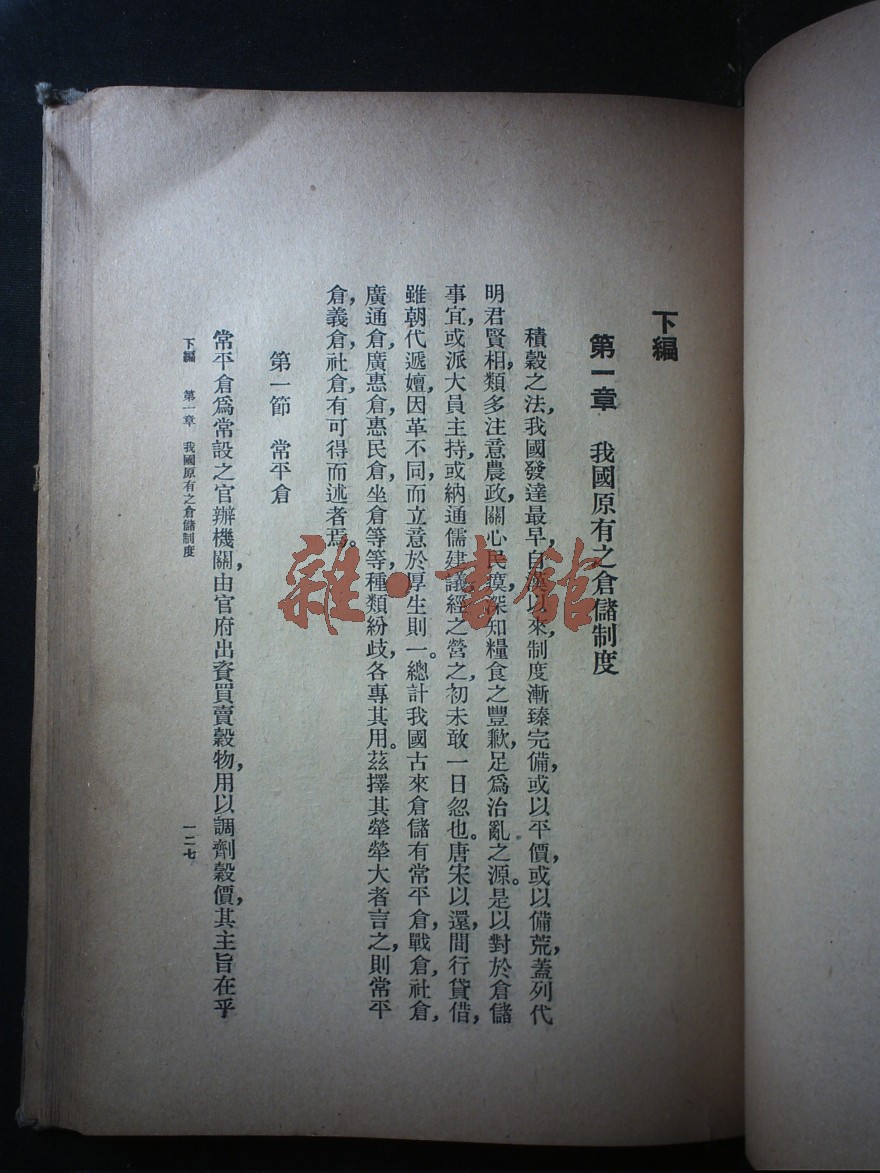 下編
第一章　我國原有之倉儲制度
積穀之法，我國發達最早，自漢以來，制度漸臻完備，或以平價，或以備荒，蓋列代
明君賢相，類多注意農政，關心民瘼，深知糧食之豐歉，足爲治亂之源。是以對於倉儲
事宜，或派大員主持，或納通儒建議，經之營之，初未敢一日忽也。唐宋以還，間行貸借，
雖朝代遞嬗，因革不同，而立意於厚生則一。總計我國古來倉儲，有常平倉，戰倉，社倉，
廣通倉，廣惠倉，惠民倉，坐倉等等，種類紛歧，各專其用。茲擇其犖犖大者言之，則常平
倉，義倉，社倉，有可得而述者焉。
第一節　常平倉
常平倉爲常設之官辦機關，由官府出資買賣穀物，用以調劑穀價，其主旨在乎
下編　第一章　我國原有之倉儲制度
一二七
雜·書館